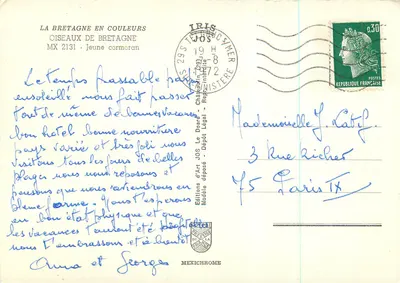 LA BRETAGNE EN COULEURS
OISEAUX DE BRETAGNE
MX 2131 - Jeune cormoran
Le temps passable pays
ensoleillé nous fait passer
tout de même de bonnes vacances
bon hotel bonne nourriture
pays varié et très joli nous
visitons tous les jours de belles
plages nous nous reposons et
pensons que nous reviendrons en
pleine forme. Nous t'espérons
en bon état physique et que
les vacances t'auront été
nous t'embrassons et à bientôt
Anna et Georges
IRIS
JOS
Editions d'Art JOS Le Doaré - Chateaulin
Modèle déposé - Dépôt Légal - Reproduction
MEXICHROME
29 S
S/MER
19 H
-8
1972
FINISTERE
0,30
POSTES
Mademoiselle J.
3 Rue Richer
75 Paris IX